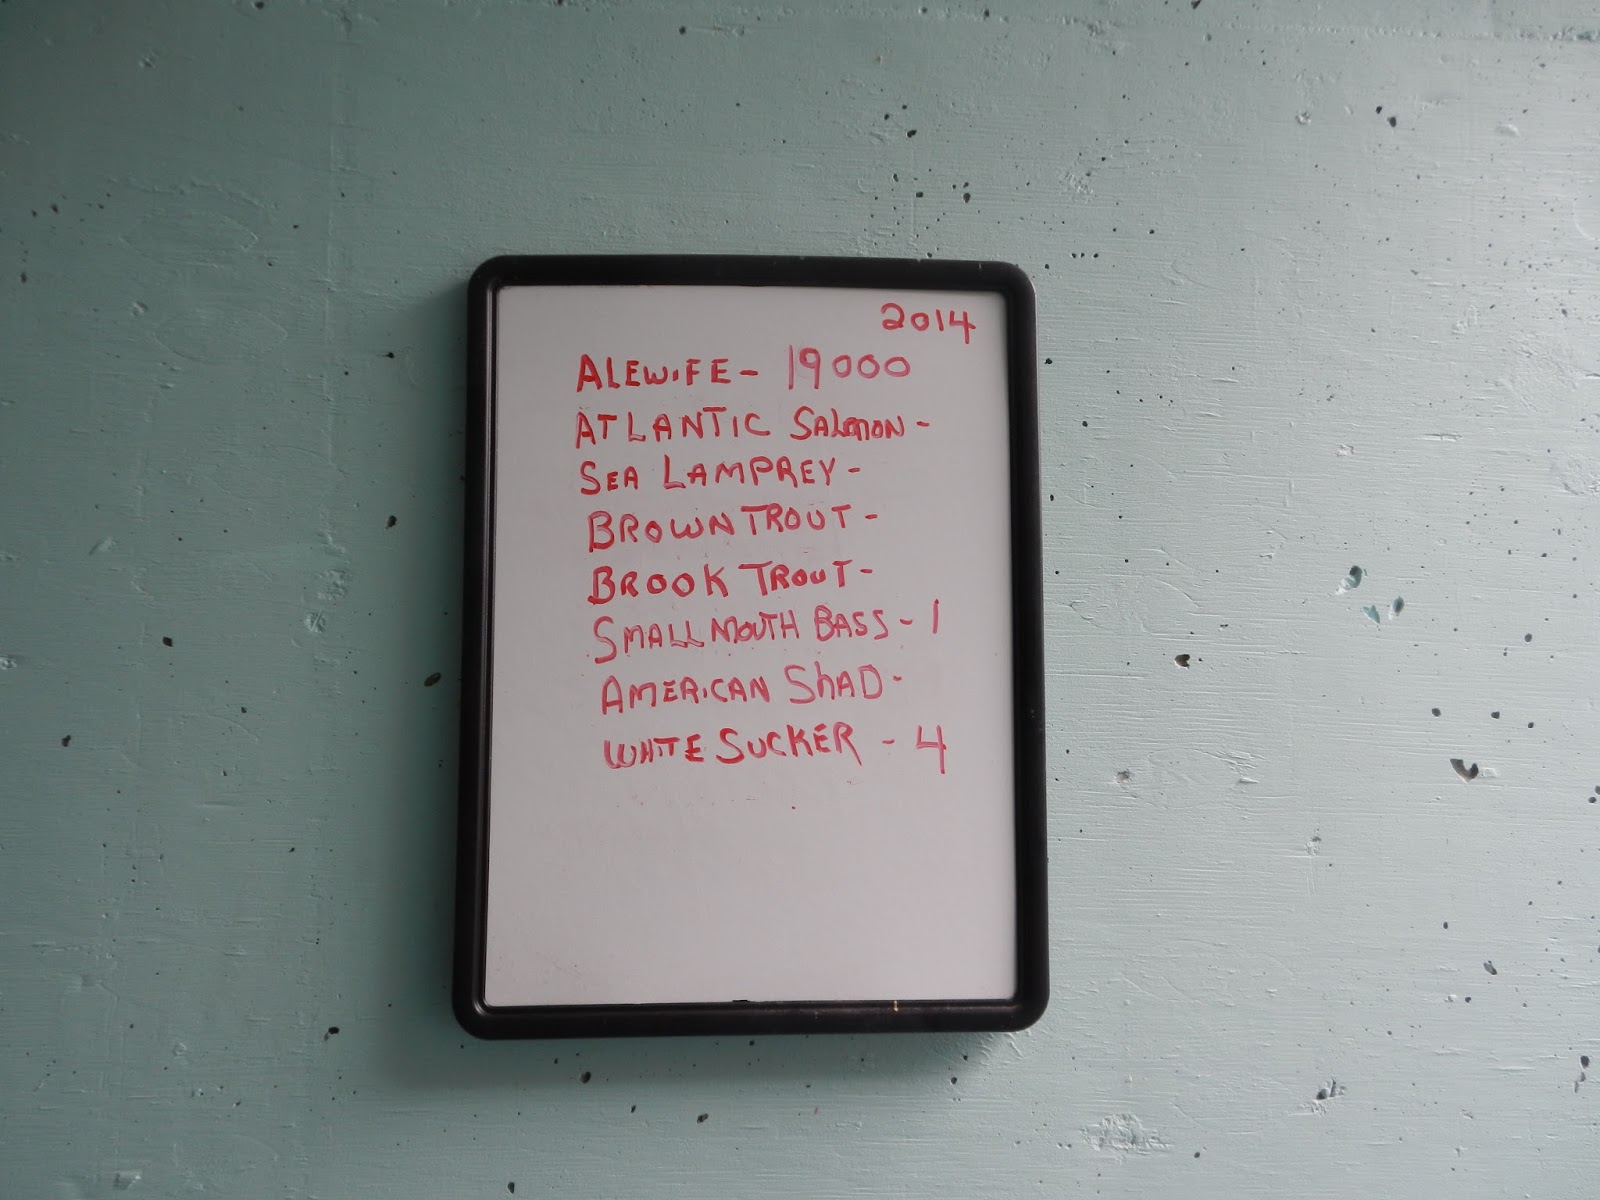 2014
ALEWIFE - 19000
ATLANTIC SALMON -
SEA LAMPREY -
BROWN TROUT -
BROOK TROUT -
SMALL MOUTH BASS - 1
AMERICAN ShAD -
WHITE SUCKER - 4